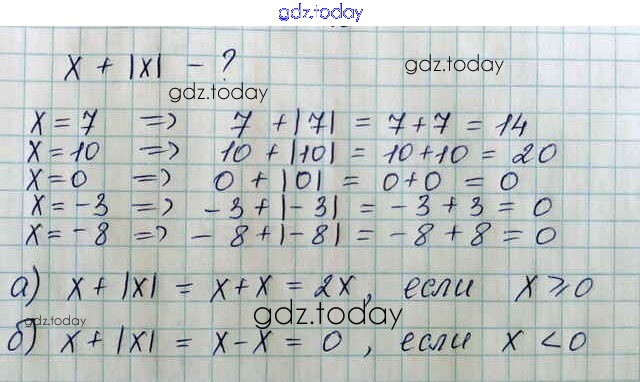 gdz.today
x + |x| - ?
gdz.today
gdz.today
x = 7 => 7 + |7| = 7+7 = 14
x = 10 => 10 + |10| = 10+10 = 20
x = 0 => 0 + |0| = 0+0 = 0
x = -3 => -3 + |-3| = -3 + 3 = 0
x = -8 => -8 + |-8| = -8 + 8 = 0
а) x + |x| = x + x = 2x, если x ⩾ 0
gdz.today
gdz.today
б) x + |x| = x - x = 0, если x < 0